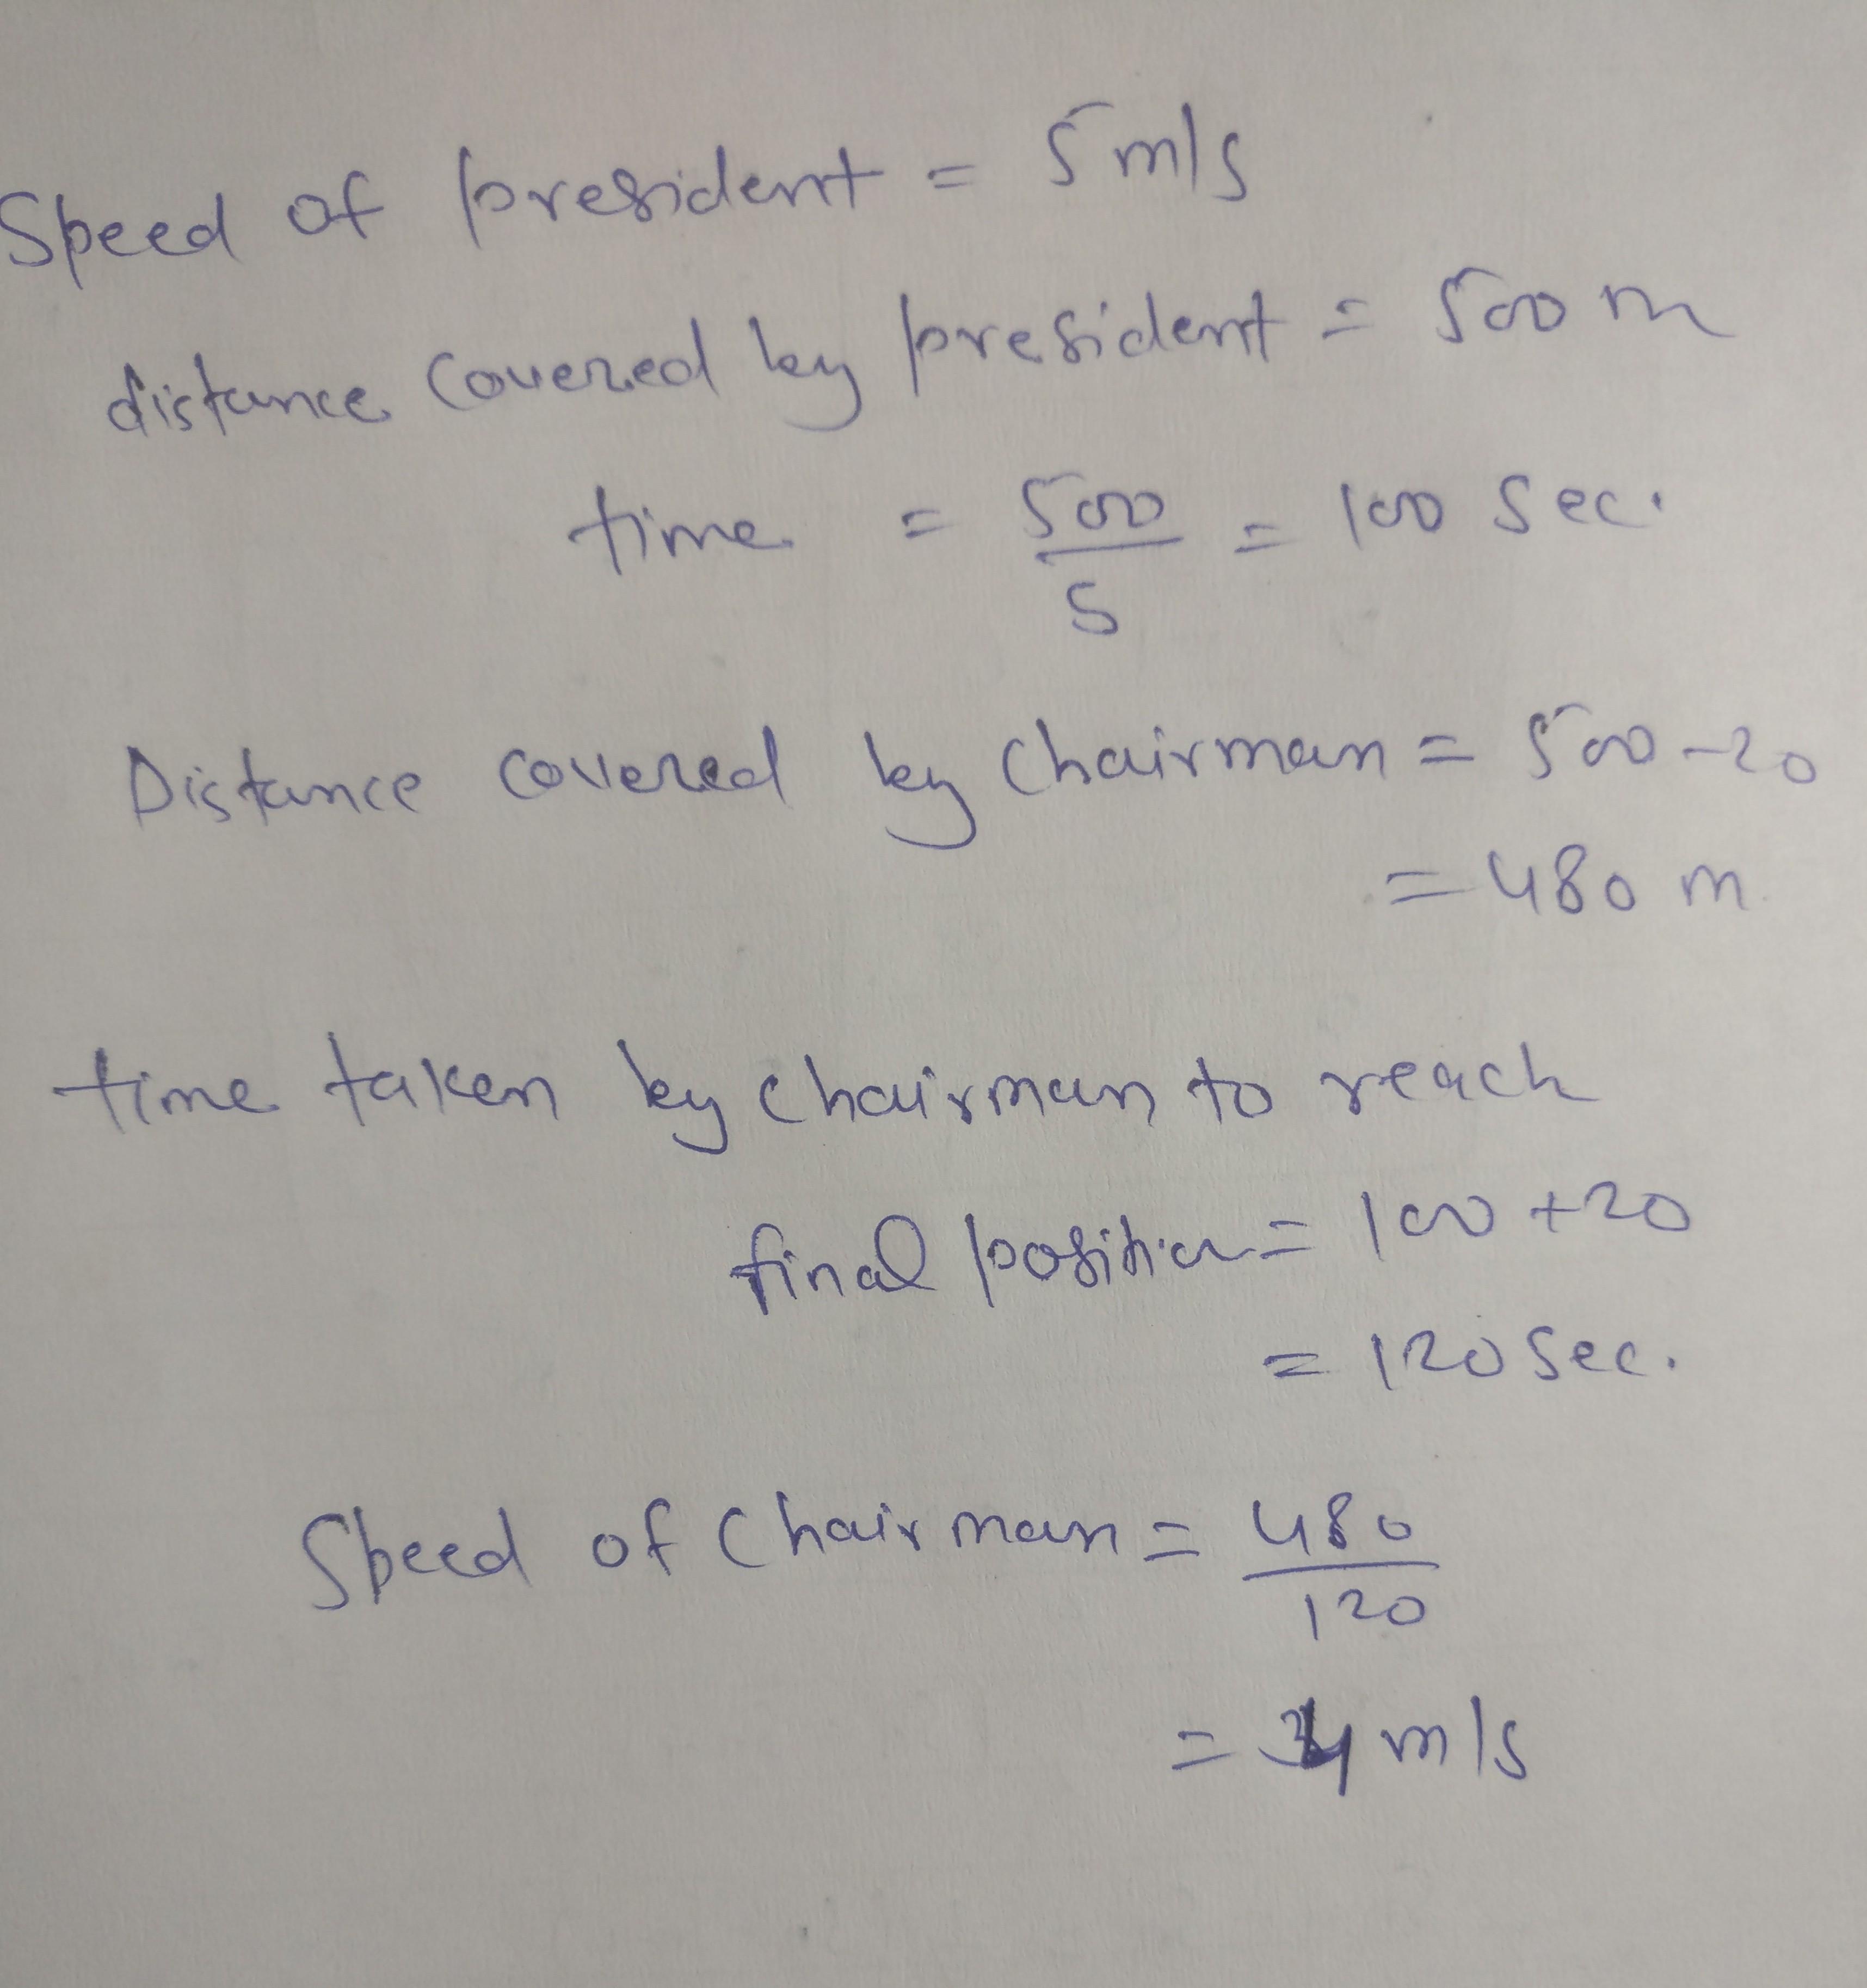 Speed of president = 5 m/s
distance covered by president = 500 m
time = 500/5 = 100 sec.
Distance covered by chairman = 500-20
= 480 m
time taken by chairman to reach
final position = 100 + 20
= 120 sec.
Speed of chairman = 480/120
= 4 m/s